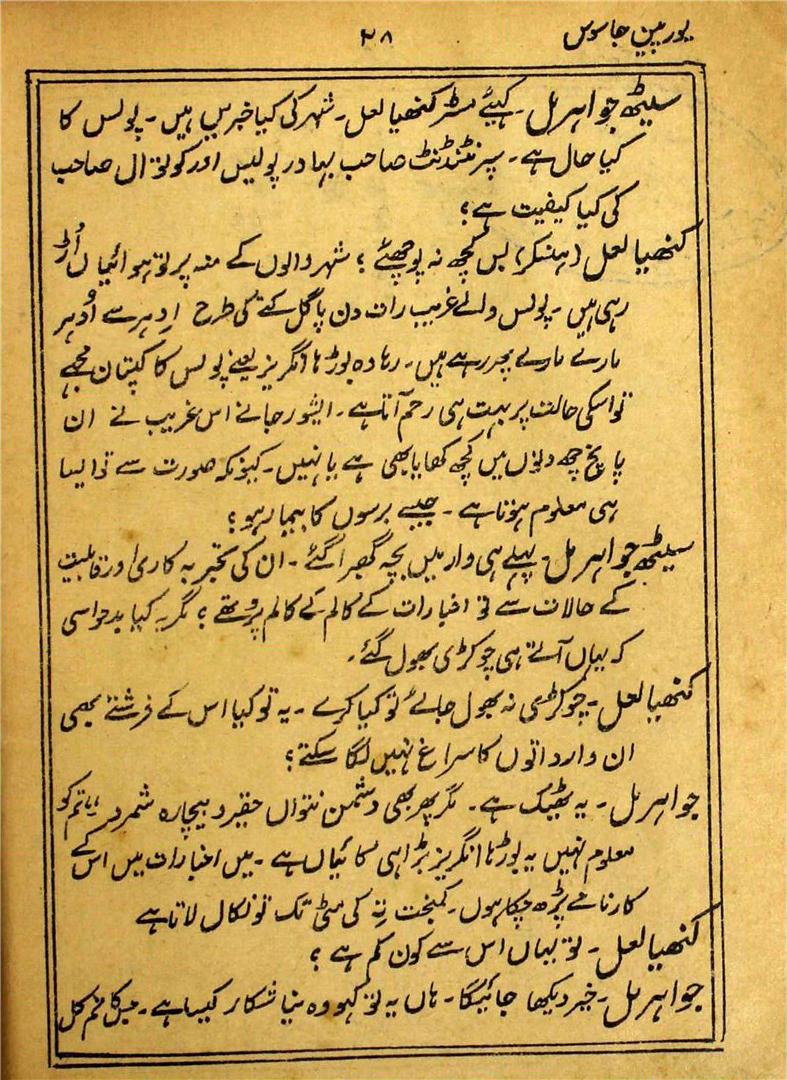 یورپین جاسوس
۲۸
سیٹھ جواہر مل۔ کہیئے مسٹر کنھیا لعل۔ شہر کی کیا خبریں ہیں۔ پولس کا
کیا حال ہے۔ سپرنٹنڈنٹ صاحب بہادر پولیس اور کوتوال صاحب
کی کیا کیفیت ہے؟
کنھیا لعل (ہنسکر) بس کچھ نہ پوچھئے؛ شہر والوں کے منہ پر تو ہوائیاں اُڑ
رہی ہیں۔ پولس والے غریب رات دن پاگل کتے کی طرح اِدہر سے اُدہر
مارے مارے پھر رہے ہیں۔ رہا وہ بوڑہا انگریز یعنے پولس کا کپتان مجھے
تو اسکی حالت پر بہت ہی رحم آتا ہے۔ ایشور جانے اس غریب نے ان
پانچ چھ دنوں میں کچھ کھایا بھی ہے یا نہیں۔ کیونکہ صورت سے تو ایسا
ہی معلوم ہوتا ہے۔ جیسے برسوں کا بیمار ہو؟
سیٹھ جواہر مل۔ پہلے ہی وار میں بچہ گھبرا گئے۔ ان کی تجربہ کاری اور قابلیت
کے حالات سے تو اخبارات کے کالم کے کالم پر تھے؛ مگر یہ کیا بدحواسی
کہ یہاں آتے ہی چوکڑی بھول گئے۔
کنھیا لعل۔ چوکڑی نہ بھول جائے تو کیا کرے۔ یہ تو کیا اس کے فرشتے بھی
ان وارداتوں کا سراغ نہیں لگا سکتے؟
جواہر مل۔ یہ ٹھیک ہے۔ مگر پھر بھی دشمن نتواں حقیر و بیچارہ شمرد،، تم کو
معلوم نہیں یہ بوڑہا انگریز بڑا ہی کائیاں ہے۔ میں اخبارات میں اس کے
کارنامے پڑھ چکا ہوں۔ کمبخت تہ کی مٹی تک تو نکال لاتا ہے
کنھیا لعل۔ تو یہاں اس سے کون کم ہے؟
جواہر مل۔ خیر دیکھا جائیگا۔ ہاں یہ تو کہو وہ نیا شکار کیسا ہے۔ جسکا تم کل